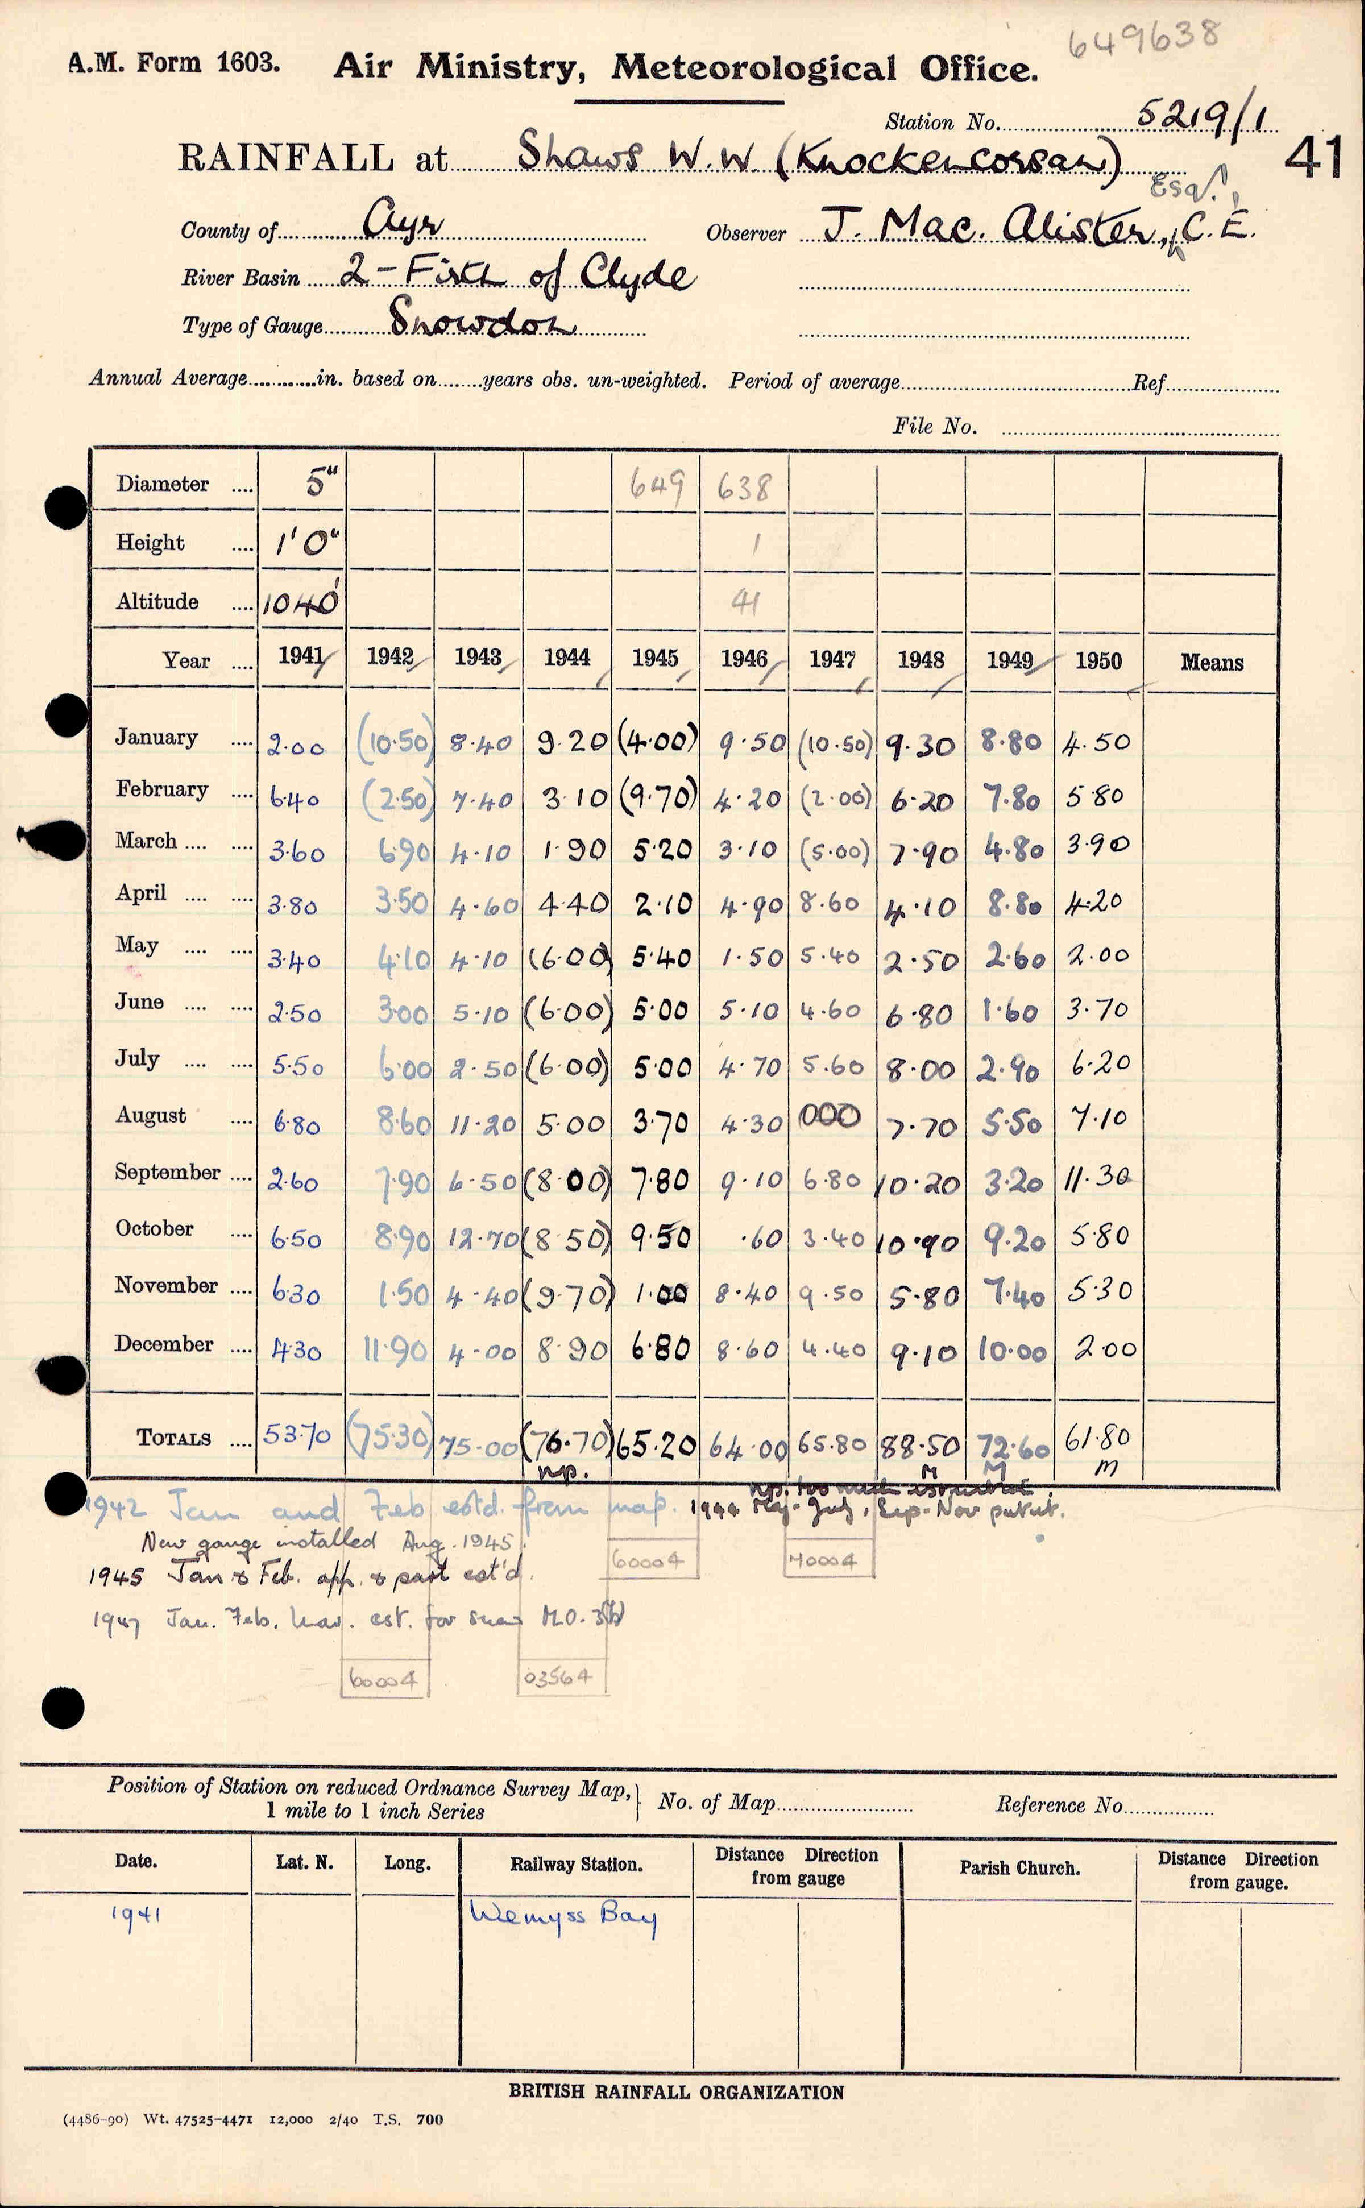 649638
A.M. Form 1603. Air Ministry, Meteorological Office.
Station No. 5219/1
RAINFALL at Shaws W.W. (Knockencorsan) 41
Esqr.,
County of Ayr Observer J. Mac. Alister, C.E.
River Basin 2 - Firth of Clyde
Type of Gauge Snowdon
Annual Average............in. based on........years obs. un-weighted. Period of average.................... Ref....................
File No. ....................
Diameter .... 5" 649 638
Height .... 1' 0" 1
Altitude .... 1040' 41
Year .... 1941 1942 1943 1944 1945 1946 1947 1948 1949 1950 Means
January .... 2.00 (10.50) 8.40 9.20 (4.00) 9.50 (10.50) 9.30 8.80 4.50
February .... 6.40 (2.50) 7.40 3.10 (9.70) 4.20 (2.00) 6.20 7.80 5.80
March .... .... 3.60 6.90 4.10 1.90 5.20 3.10 (5.00) 7.90 4.80 3.90
April .... .... 3.80 3.50 4.60 4.40 2.10 4.90 8.60 4.10 8.80 4.20
May .... .... 3.40 4.10 4.10 (6.00) 5.40 1.50 5.40 2.50 2.60 2.00
June .... .... 2.50 3.00 5.10 (6.00) 5.00 5.10 4.60 6.80 1.60 3.70
July .... .... 5.50 6.00 2.50 (6.00) 5.00 4.70 5.60 8.00 2.90 6.20
August .... 6.80 8.60 11.20 5.00 3.70 4.30 000 7.70 5.50 7.10
September .... 2.60 7.90 6.50 (8.00) 7.80 9.10 6.80 10.20 3.20 11.30
October .... 6.50 8.90 12.70 (8.50) 9.50 .60 3.40 10.90 9.20 5.80
November .... 6.30 1.50 4.40 (9.70) 1.00 8.40 9.50 5.80 7.40 5.30
December .... 4.30 11.90 4.00 8.90 6.80 8.60 4.40 9.10 10.00 2.00
TOTALS .... 53.70 (75.30) 75.00 (76.70) 65.20 64.00 65.80 88.50 72.60 61.80
n.p. M M M
1942 Jan and Feb estd. from map. 1944 May-July, Sep-Nov
New gauge installed Aug. 1945. 60004 70004
1945 Jan & Feb. app. & part est'd.
1947 Jan. Feb. Mar. est. for snow M.O. 3(b)
60004 03564
Position of Station on reduced Ordnance Survey Map, No. of Map.................... Reference No....................
1 mile to 1 inch Series
Date. Lat. N. Long. Railway Station. Distance from gauge Direction Parish Church. Distance Direction from gauge.
1941 Wemyss Bay
BRITISH RAINFALL ORGANIZATION
(4486-90) Wt. 47525-4471 12,000 2/40 T.S. 700